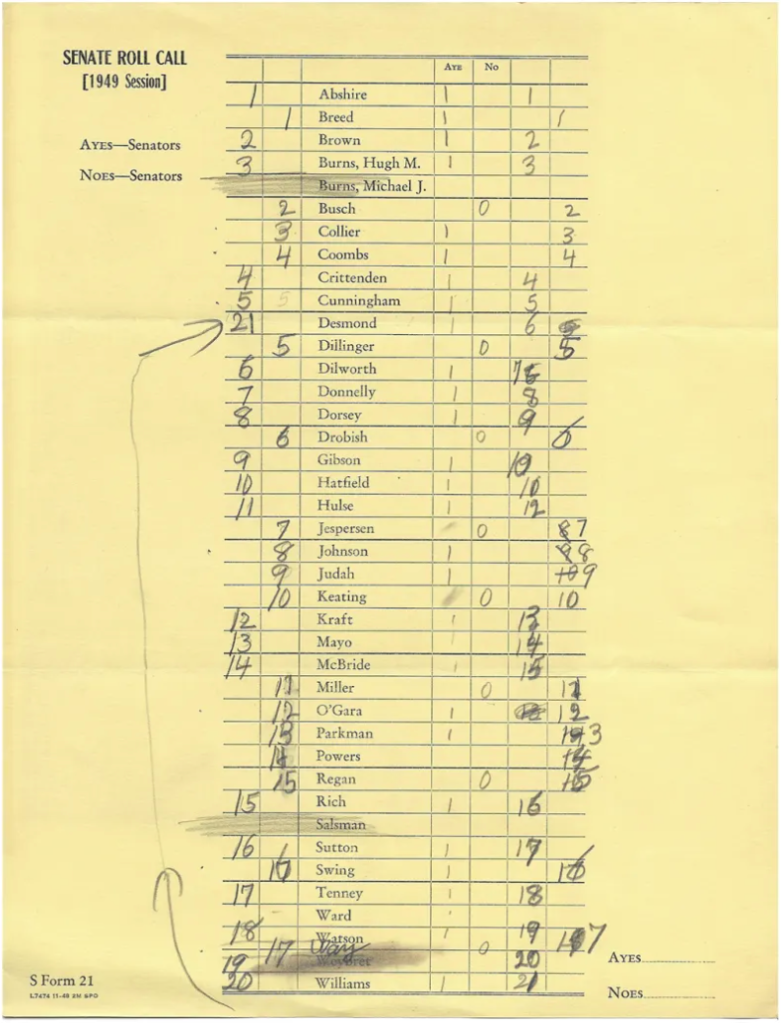 SENATE ROLL CALL
[1949 Session]
AYES—Senators
NOES—Senators
AYE NO
1 Abshire 1 1
1 Breed 1 1
2 Brown 1 2
3 Burns, Hugh M. 1 3
Burns, Michael J.
2 Busch 0 2
3 Collier 1 3
4 Coombs 1 4
4 Crittenden 1 4
5 5 Cunningham 1 5
21 Desmond 1 6
5 Dillinger 0 5
6 Dilworth 1
7 Donnelly 1 8
8 Dorsey 1 9
6 Drobish 0 6
9 Gibson 1
10 Hatfield 1
11 Hulse 1 12
7 Jespersen 0 7
8 Johnson 1 8
9 Judah 1 9
10 Keating 0 10
12 Kraft 1 13
13 Mayo 14
14 McBride 1 15
11 Miller 0 11
12 O'Gara 1 12
13 Parkman 1 13
14 Powers 14
15 Regan 0 15
15 Rich 1 16
Salsman
16 Sutton 1 17
Swing 1
17 Tenney 1 18
Ward
18 Watson 1 19
17 Way 0 17
19 20
20 Williams 1 21
AYES
NOES
S Form 21
L7474 11-48 2M SPO